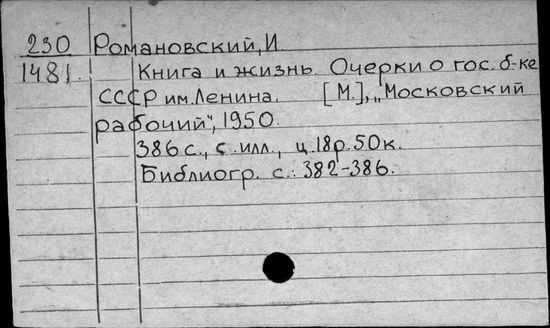 230 Романовский, И.
1481. Книга и жизнь. Очерки о гос. б-ке
СССР им. Ленина. [М.], „Московский
рабочий", 1950.
386 с., с илл., ц. 18 р. 50 к.
Библиогр. с.: 382-386.